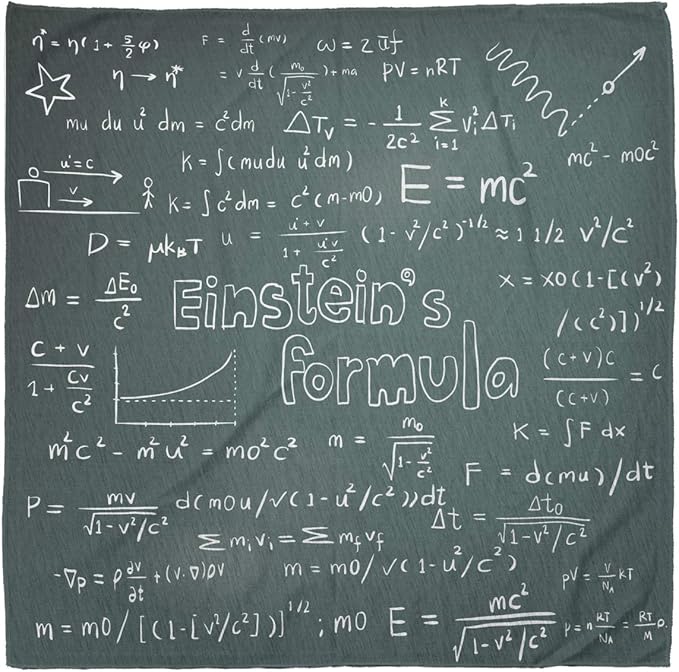 η* = η(1 + 5/2 φ)
F = d/dt (mv)
= v d/dt (m₀/√(1-v²/c²)) + ma
ω = 2πf
η → η*
PV = nRT
mu du u² dm = c²dm
ΔTᵥ = - 1/2c² Σ(i=1 to k) vᵢ² ΔTᵢ
mc² - moc²
u' = c
v
K = ∫(mudu u² dm)
K = ∫c²dm = c²(m-m0)
E = mc²
D = μk_BT
u = (u' + v)/(1 + u'v/c²)
(1 - v²/c²)^-1/2 ≈ 1 1/2 v²/c²
Δm = ΔE₀/c²
Einstein's
formula
x = x0(1-[(v²)
/(c²)])^1/2
(c + v)/(1 + cv/c²)
((c+v)c)/((c+v)) = c
m²c² - m²u² = mo²c²
m = m₀/√(1-v²/c²)
K = ∫F dx
F = d(mu)/dt
P = mv/√(1-v²/c²)
d(mou/√(1-u²/c²))dt
Δt = Δt₀/√(1-v²/c²)
Σ mᵢvᵢ = Σ m_f v_f
-∇p = ρ ∂v/∂t + (v·∇)ρv
m = m0/√(1-u²/c²)
pV = V/N_A kT
m = m0/[(1-[v²/c²])]^1/2 ; m0
E = mc²/√(1-v²/c²)
p = n RT/N_A = RT/M ρ.